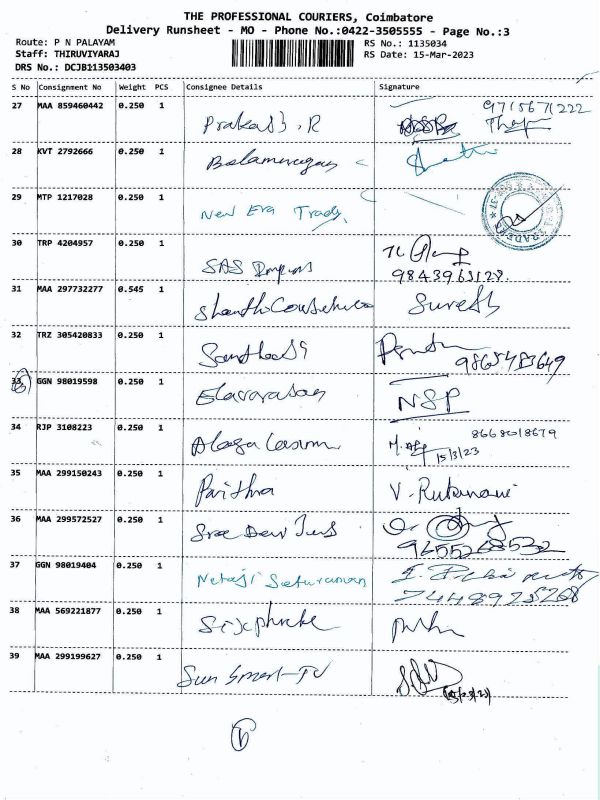 THE PROFESSIONAL COURIERS, Coimbatore
Delivery Runsheet - MO - Phone No.:0422-3505555 - Page No.:3
Route: P N PALAYAM
RS No.: 1135034
Staff: THIRUVIYARAJ
RS Date: 15-Mar-2023
DRS No.: DCJB113503403
S No Consignment No Weight PCS Consignee Details Signature
27 MAA 859460442 0.250 1 Prakash.R 9715671222
28 KVT 2792666 0.250 1 Balamurugan
29 MTP 1217028 0.250 1 New Era Trads.
30 TRP 4204957 0.250 1 SAS
9843963128.
31 MAA 297732277 0.545 1 Suresh
32 TRZ 305420833 0.250 1 Santhosh
9865483649
33 GGN 98019598 0.250 1 Elavarasan NSP
34 RJP 3108223 0.250 1 8668018679
15/3/23
35 MAA 299150243 0.250 1 Pavithra V. Rukumani
36 MAA 299572527 0.250 1 Sree Devi
9655268532
37 GGN 98019404 0.250 1 Netaji Seturaman
7448925268
38 MAA 569221877 0.250 1
39 MAA 299199627 0.250 1 Sun Smart-TV